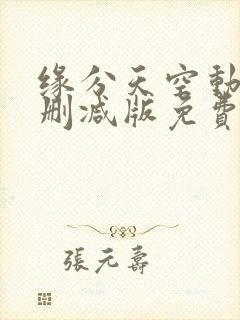 缘分天空動
删减版免費
張元壽